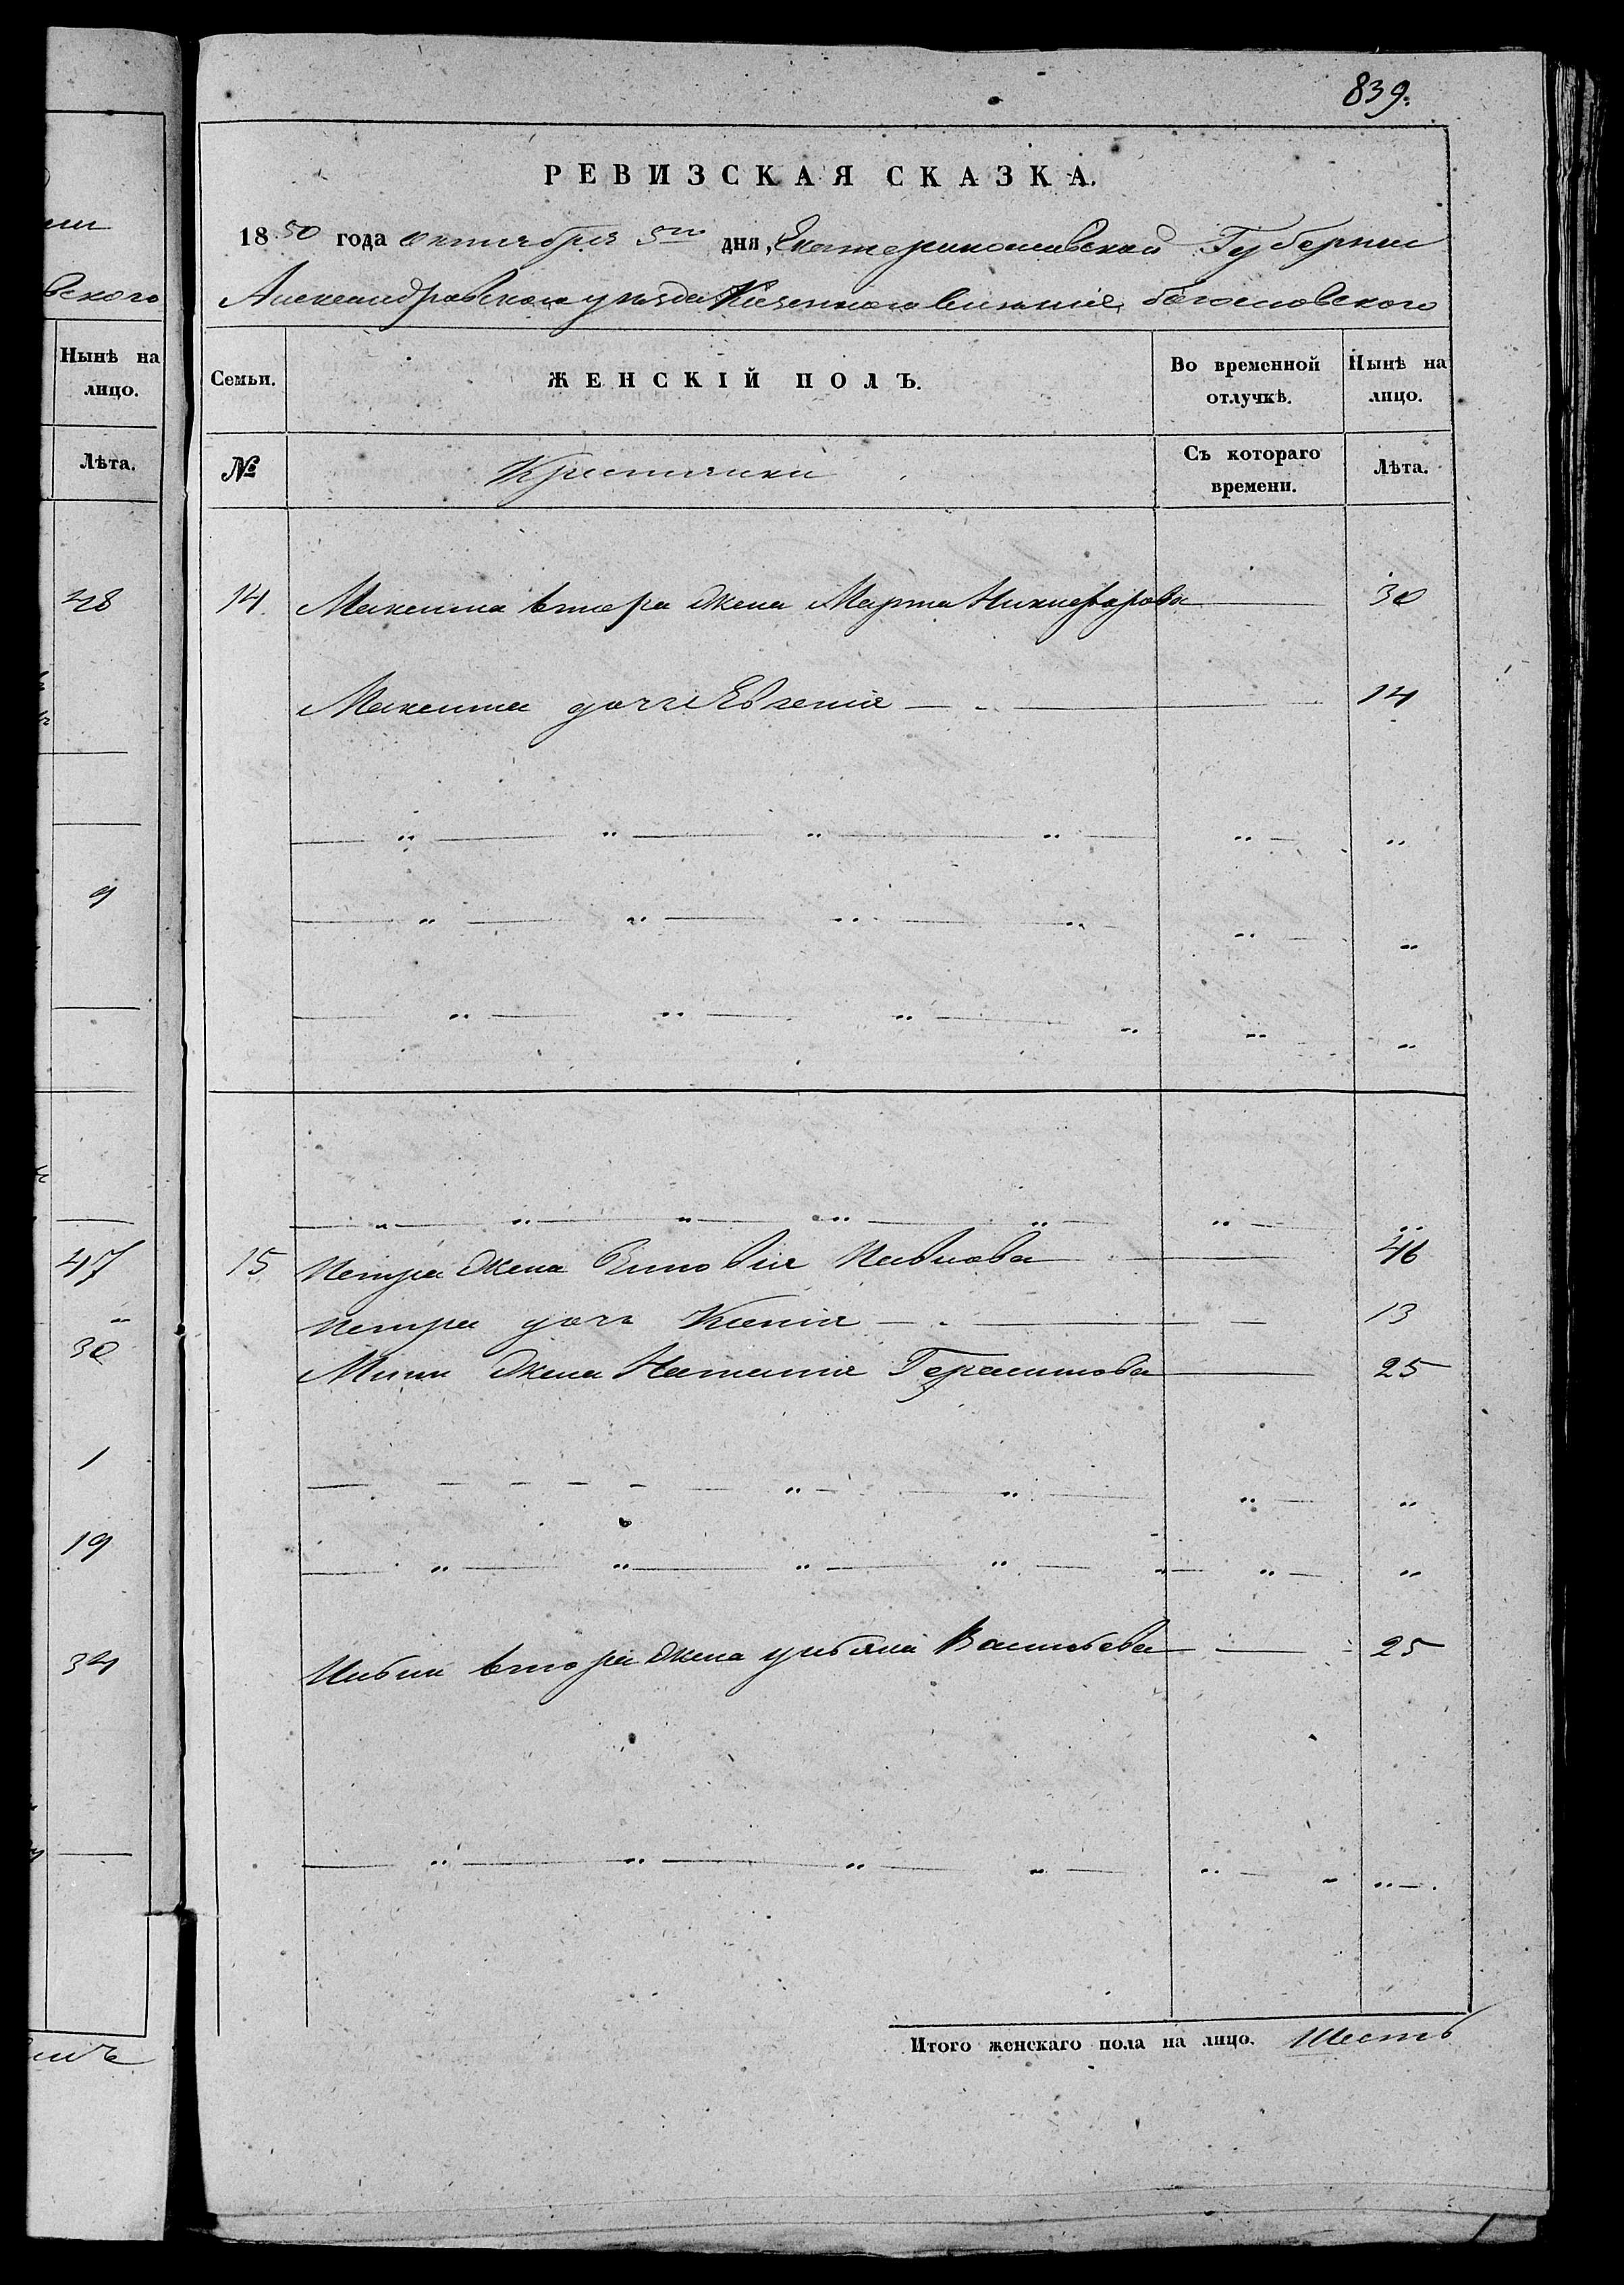 839.
РЕВИЗСКАЯ СКАЗКА.
1850 года октября 5го дня, Екатеринославской Губернии
Александровского уезда Казенного селение богословского
ими
вского
Нынѣ на лицо.
Лѣта.
28
9
47
30
1
19
34
Семьи.
ЖЕНСКІЙ ПОЛЪ.
Во временной отлучкѣ.
Нынѣ на лицо.
№
Крестьянки
Съ котораго времени.
Лѣта.
14. Максима втора жена Марта Никифорова 30
Максима дочь Евгенія 14
15 Петра жена Зиновія Павлова 46
Петра дочь Ксенія 13
жена Наталия Герасимова 25
втора жена ульяна Васильева 25
Итого женскаго пола на лицо. Шесть